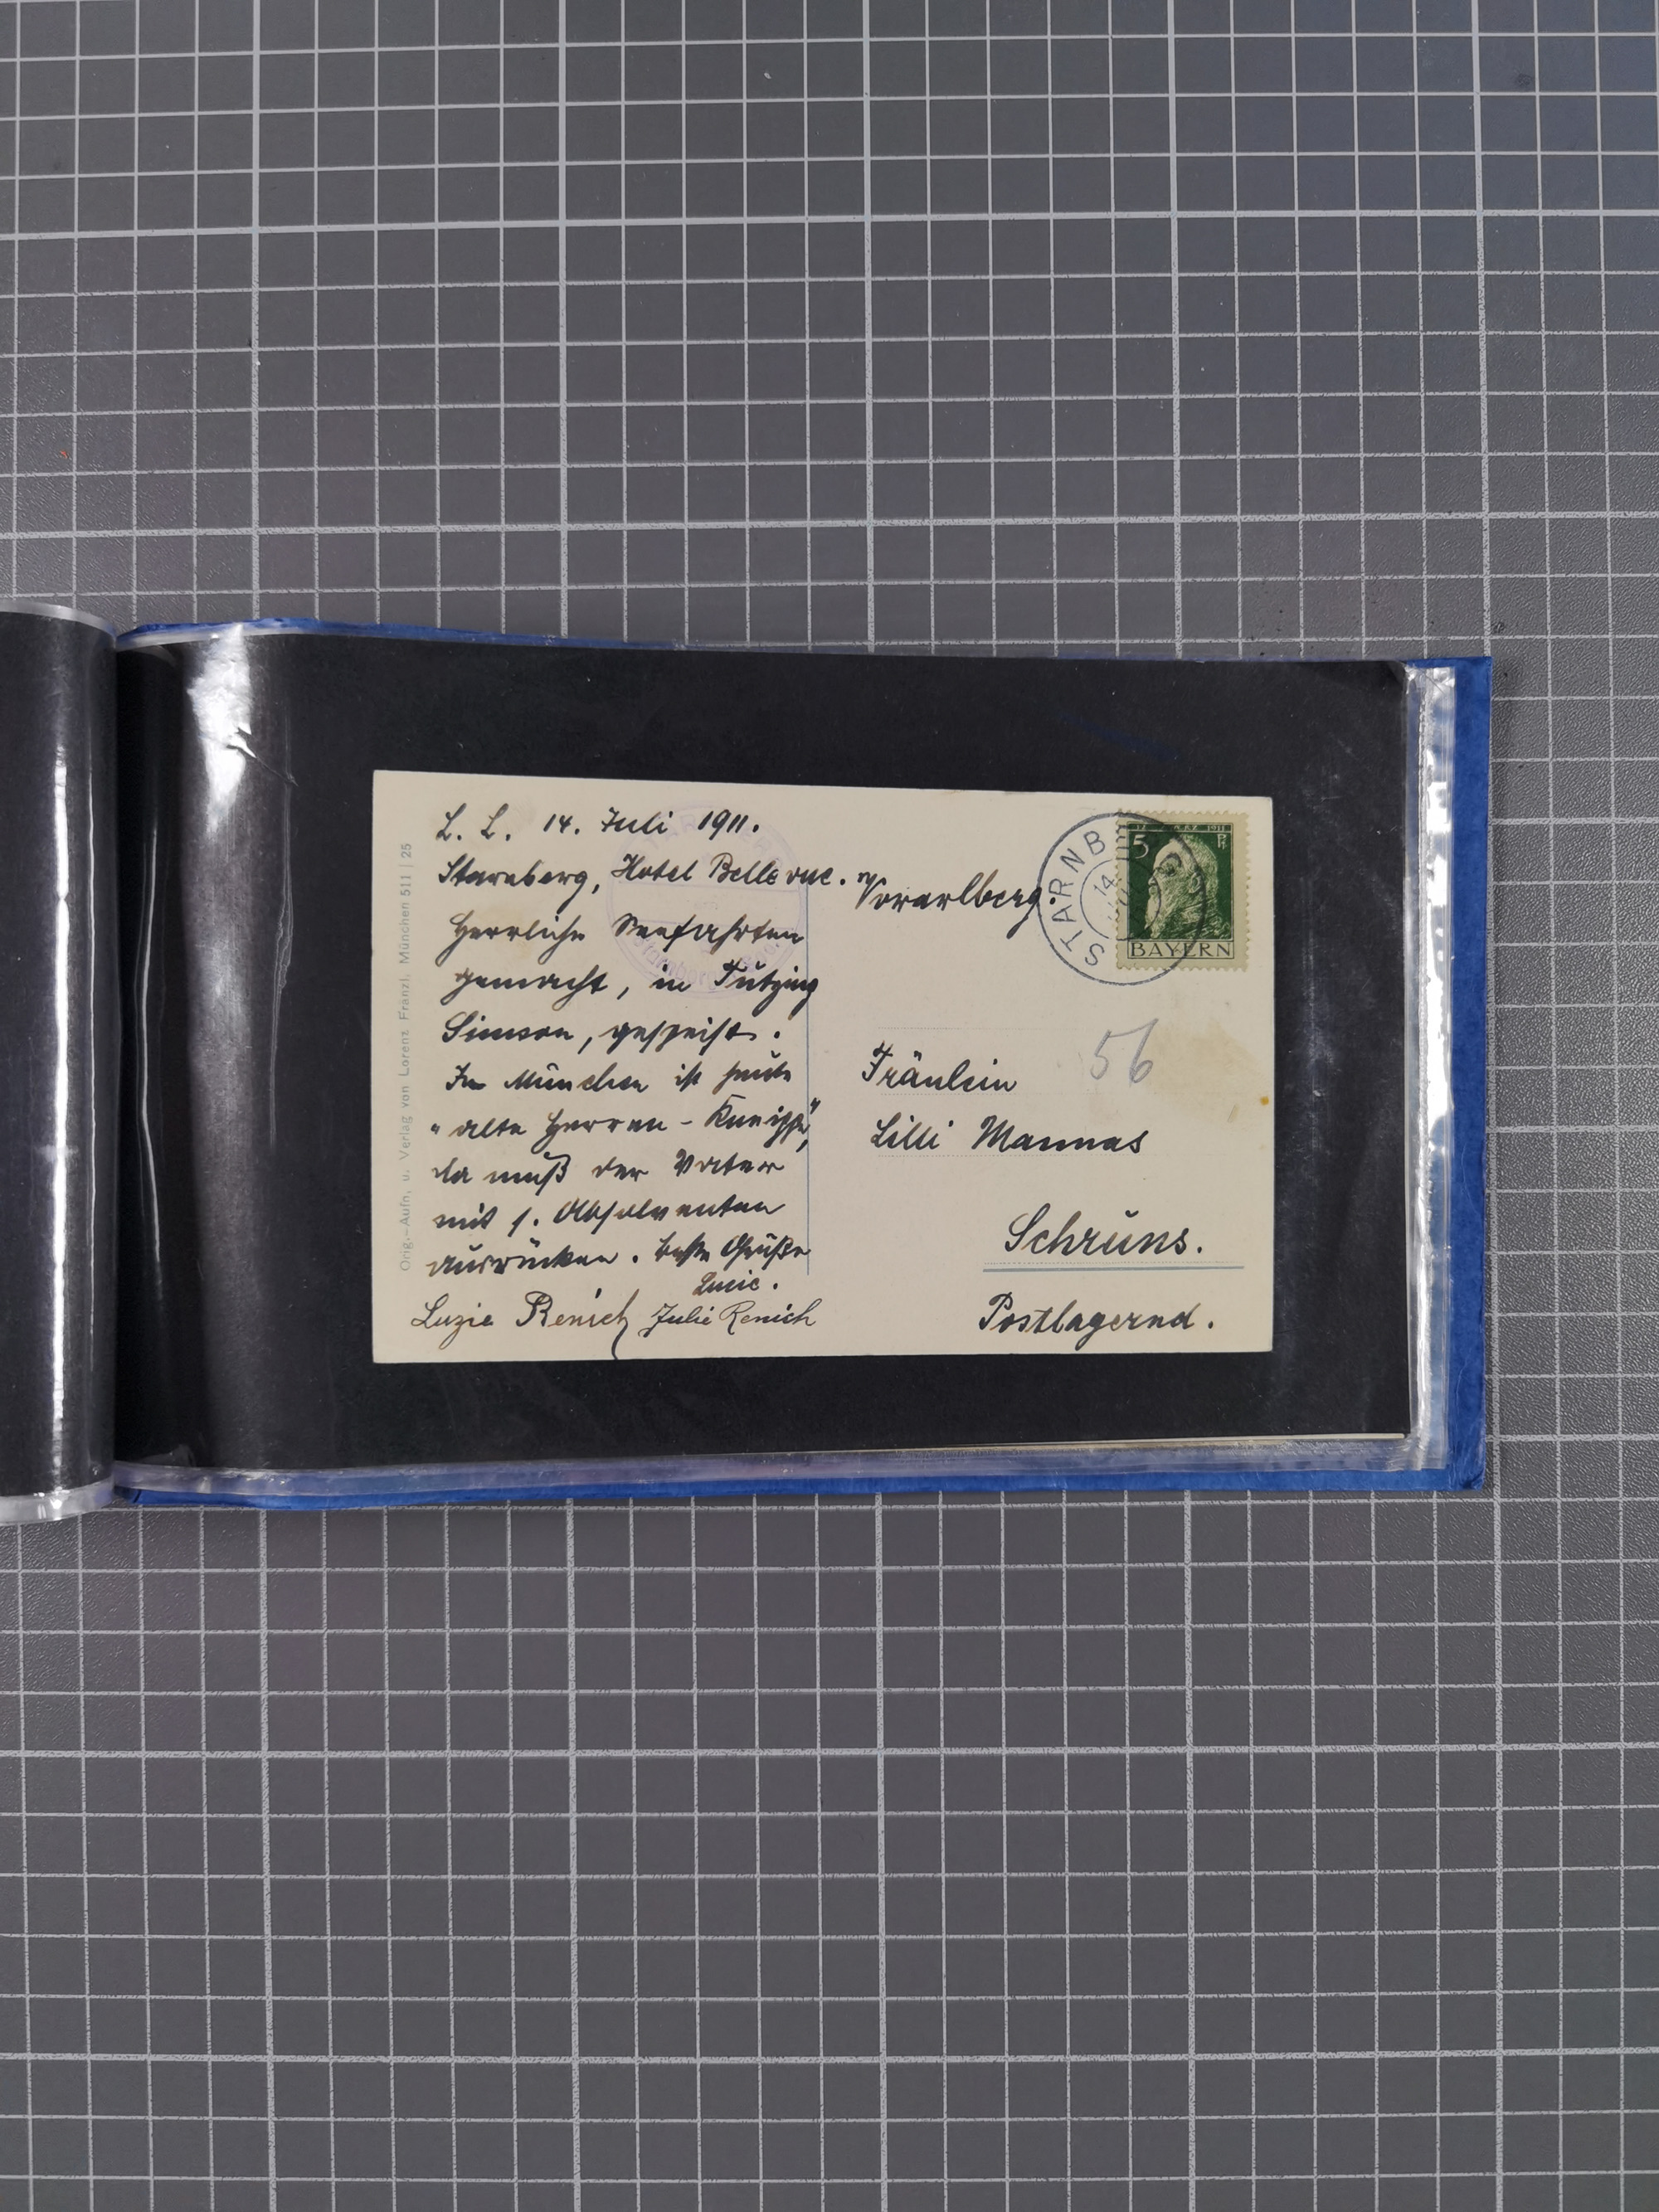 L. L. 14. Juli 1911.
Starnberg, Hotel Bellevue.
Herrliche Seefahrten
gemacht, in Tutzing
Simson, gespeist.
In München ist heute
"alte Herren-Kneippe",
da muß der Vater
mit s. Absolventen
ausrücken. Beste Grüße
Luzie.
Luzie Renich Julie Renich
Orig.-Aufn. u. Verlag von Lorenz Fränzl, München 511 | 25
Vorarlberg.
STARNB
14
5 Pf
BAYERN
56
Fräulein
Lilli Mannas
Schruns.
Postlagernd.